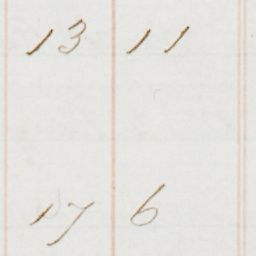 13 11
17 6